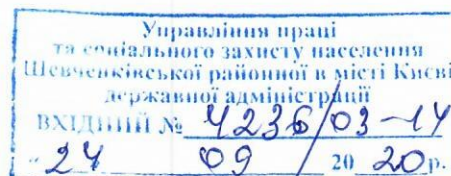 Управління праці
та соціального захисту населення
Шевченківської районної в місті Києві
державної адміністрації
ВХІДНИЙ № 4236/03-14
"24 09 2020р.